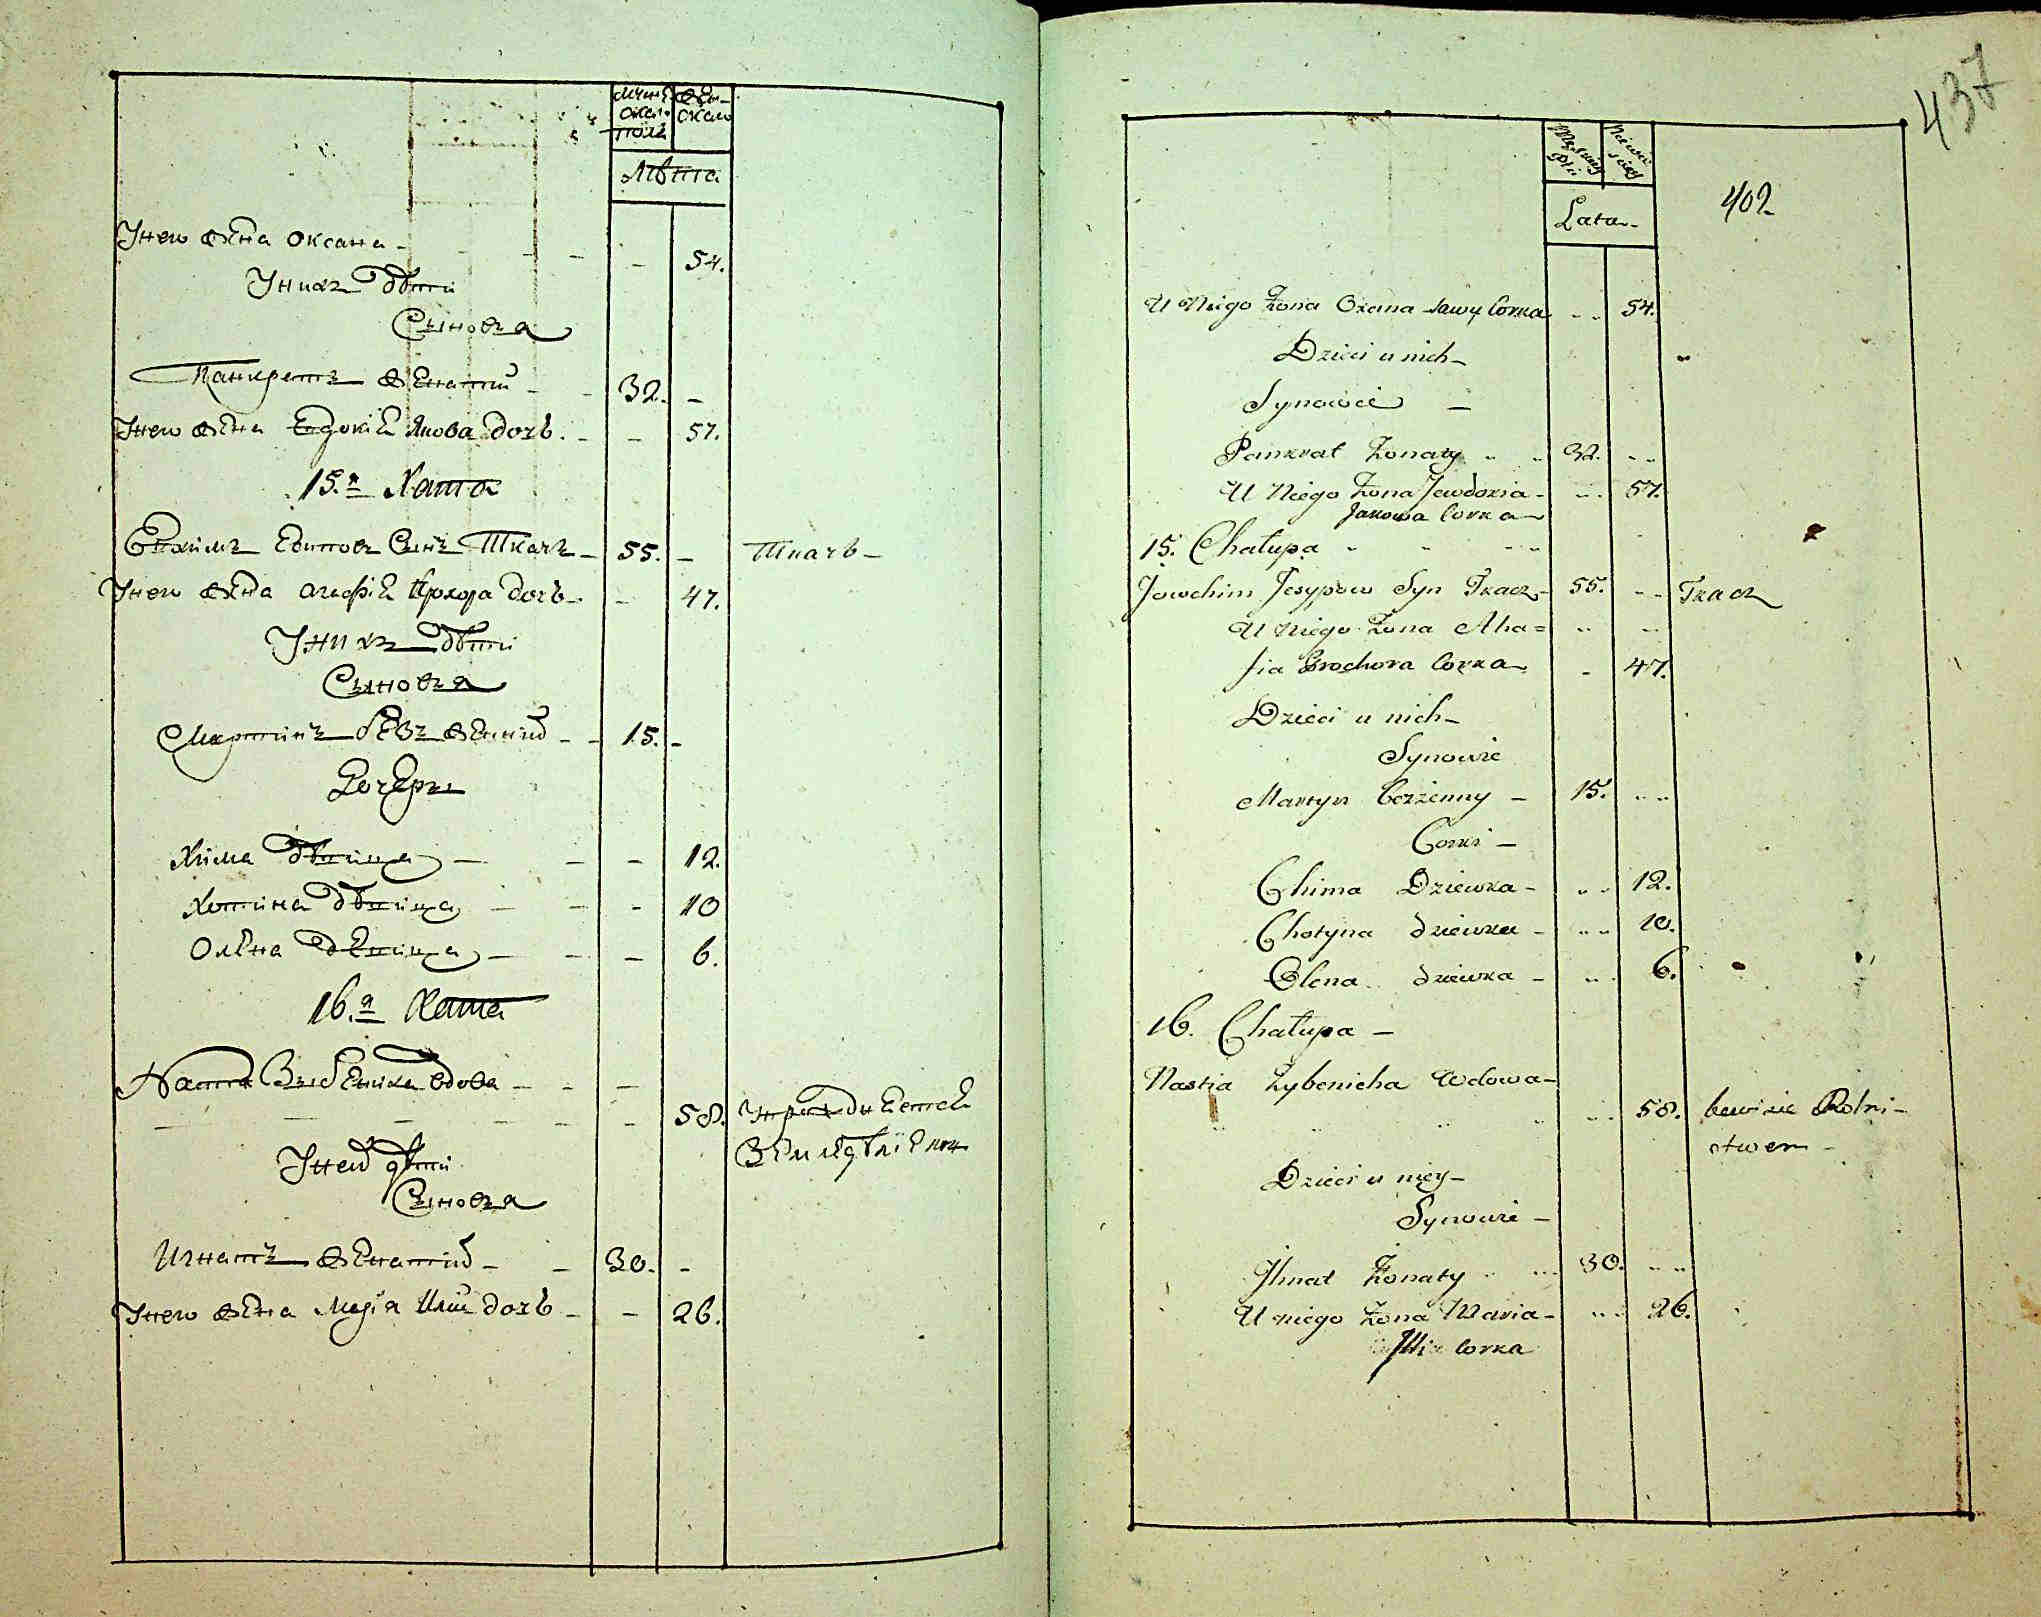 Мужеска полу
Женскаго
Лѣта
У него жена Оксана - 54.
У нихъ дѣти
Сыновья
Панкратъ женатый - 32. -
У него жена Евдокія Якова дочь. - 57.
15.я Хата
Евхимъ Есиповъ Сынъ Ткачъ - 55. - Ткачь -
У него жена Агафія Прохора дочь - 47.
У нихъ дѣти
Сыновья
Мартинъ безъ женный - 15. -
Дочери
Хима дѣвица - 12.
Хотина дѣвица - 10
Олена дѣвица - 6.
16.я Хата
Настя Зыбениха вдова -
58. Упражняется
Земледѣліемъ
У ней дѣти
Сыновья
Игнатъ женатый - 30. -
У него жена Марія Иліи дочь - 26.
437
402
Męskiey Płci
Niewieściey
Lata
U Niego Żona Oxana Sawy Corka 54.
Dzieci u nich -
Synowie -
Pankrat Żonaty 32.
U Niego Żona Jewdokia - 57.
Jakowa Corka -
15. Chałupa
Jowchim Jesypow Syn Tkacz - 55. Tkacz
U Niego Żona Aha=
fia Prochora Corka - 47.
Dzieci u nich -
Synowie
Martyn bezżenny - 15.
Corki -
Chima Dziewka - 12.
Chotyna dziewka - 10.
Olena dziewka - 6.
16. Chałupa -
Nastia Zybenicha Wdowa -
58. bawi sie Rolni-
ctwem -
Dzieci u niey -
Synowie -
Jhnat Żonaty 30.
U niego Żona Maria - 26.
Illi Corka